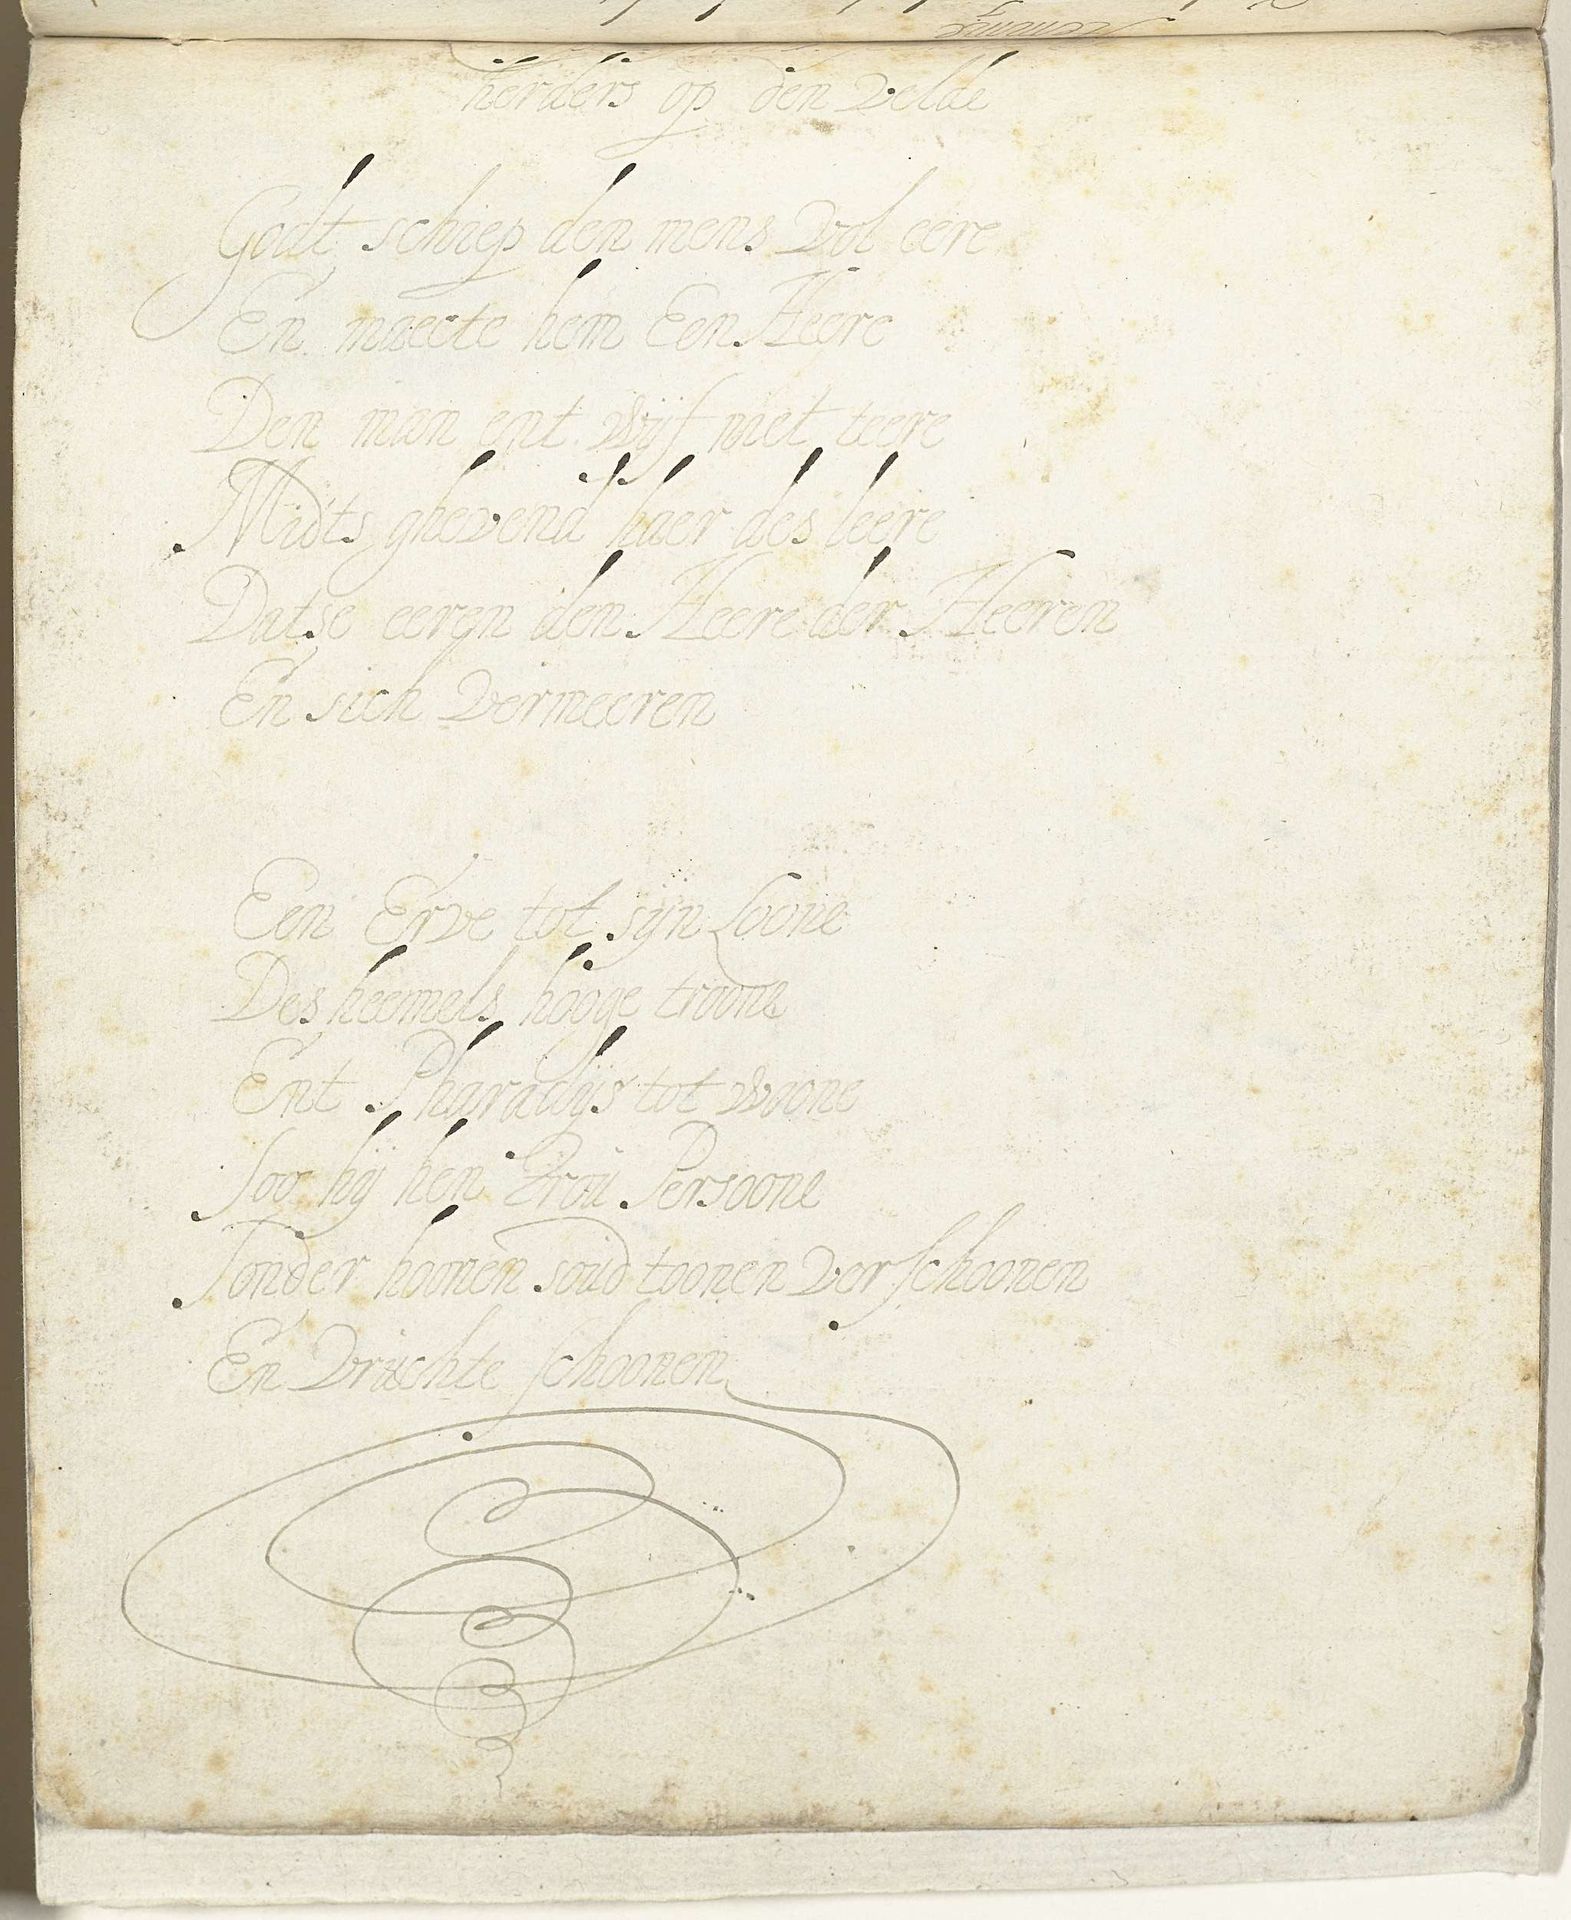 herders op den velde
Godt schiep den mens vol eere
En maecte hem Een Heere
Den man ent wijf met teere
Midts ghevend haer des leere
Datse eeren den Heere der Heeren
En sich vermeeren
Een Erve tot sijn Loone
Des heemels hooge troone
Ent Pharadijs tot woone
Soo hij hen Persoone
Sonder hoonen soud toonen verschoonen
En vruchte schoonen